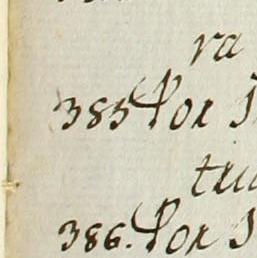 ra
385 Por
tru
386. Por